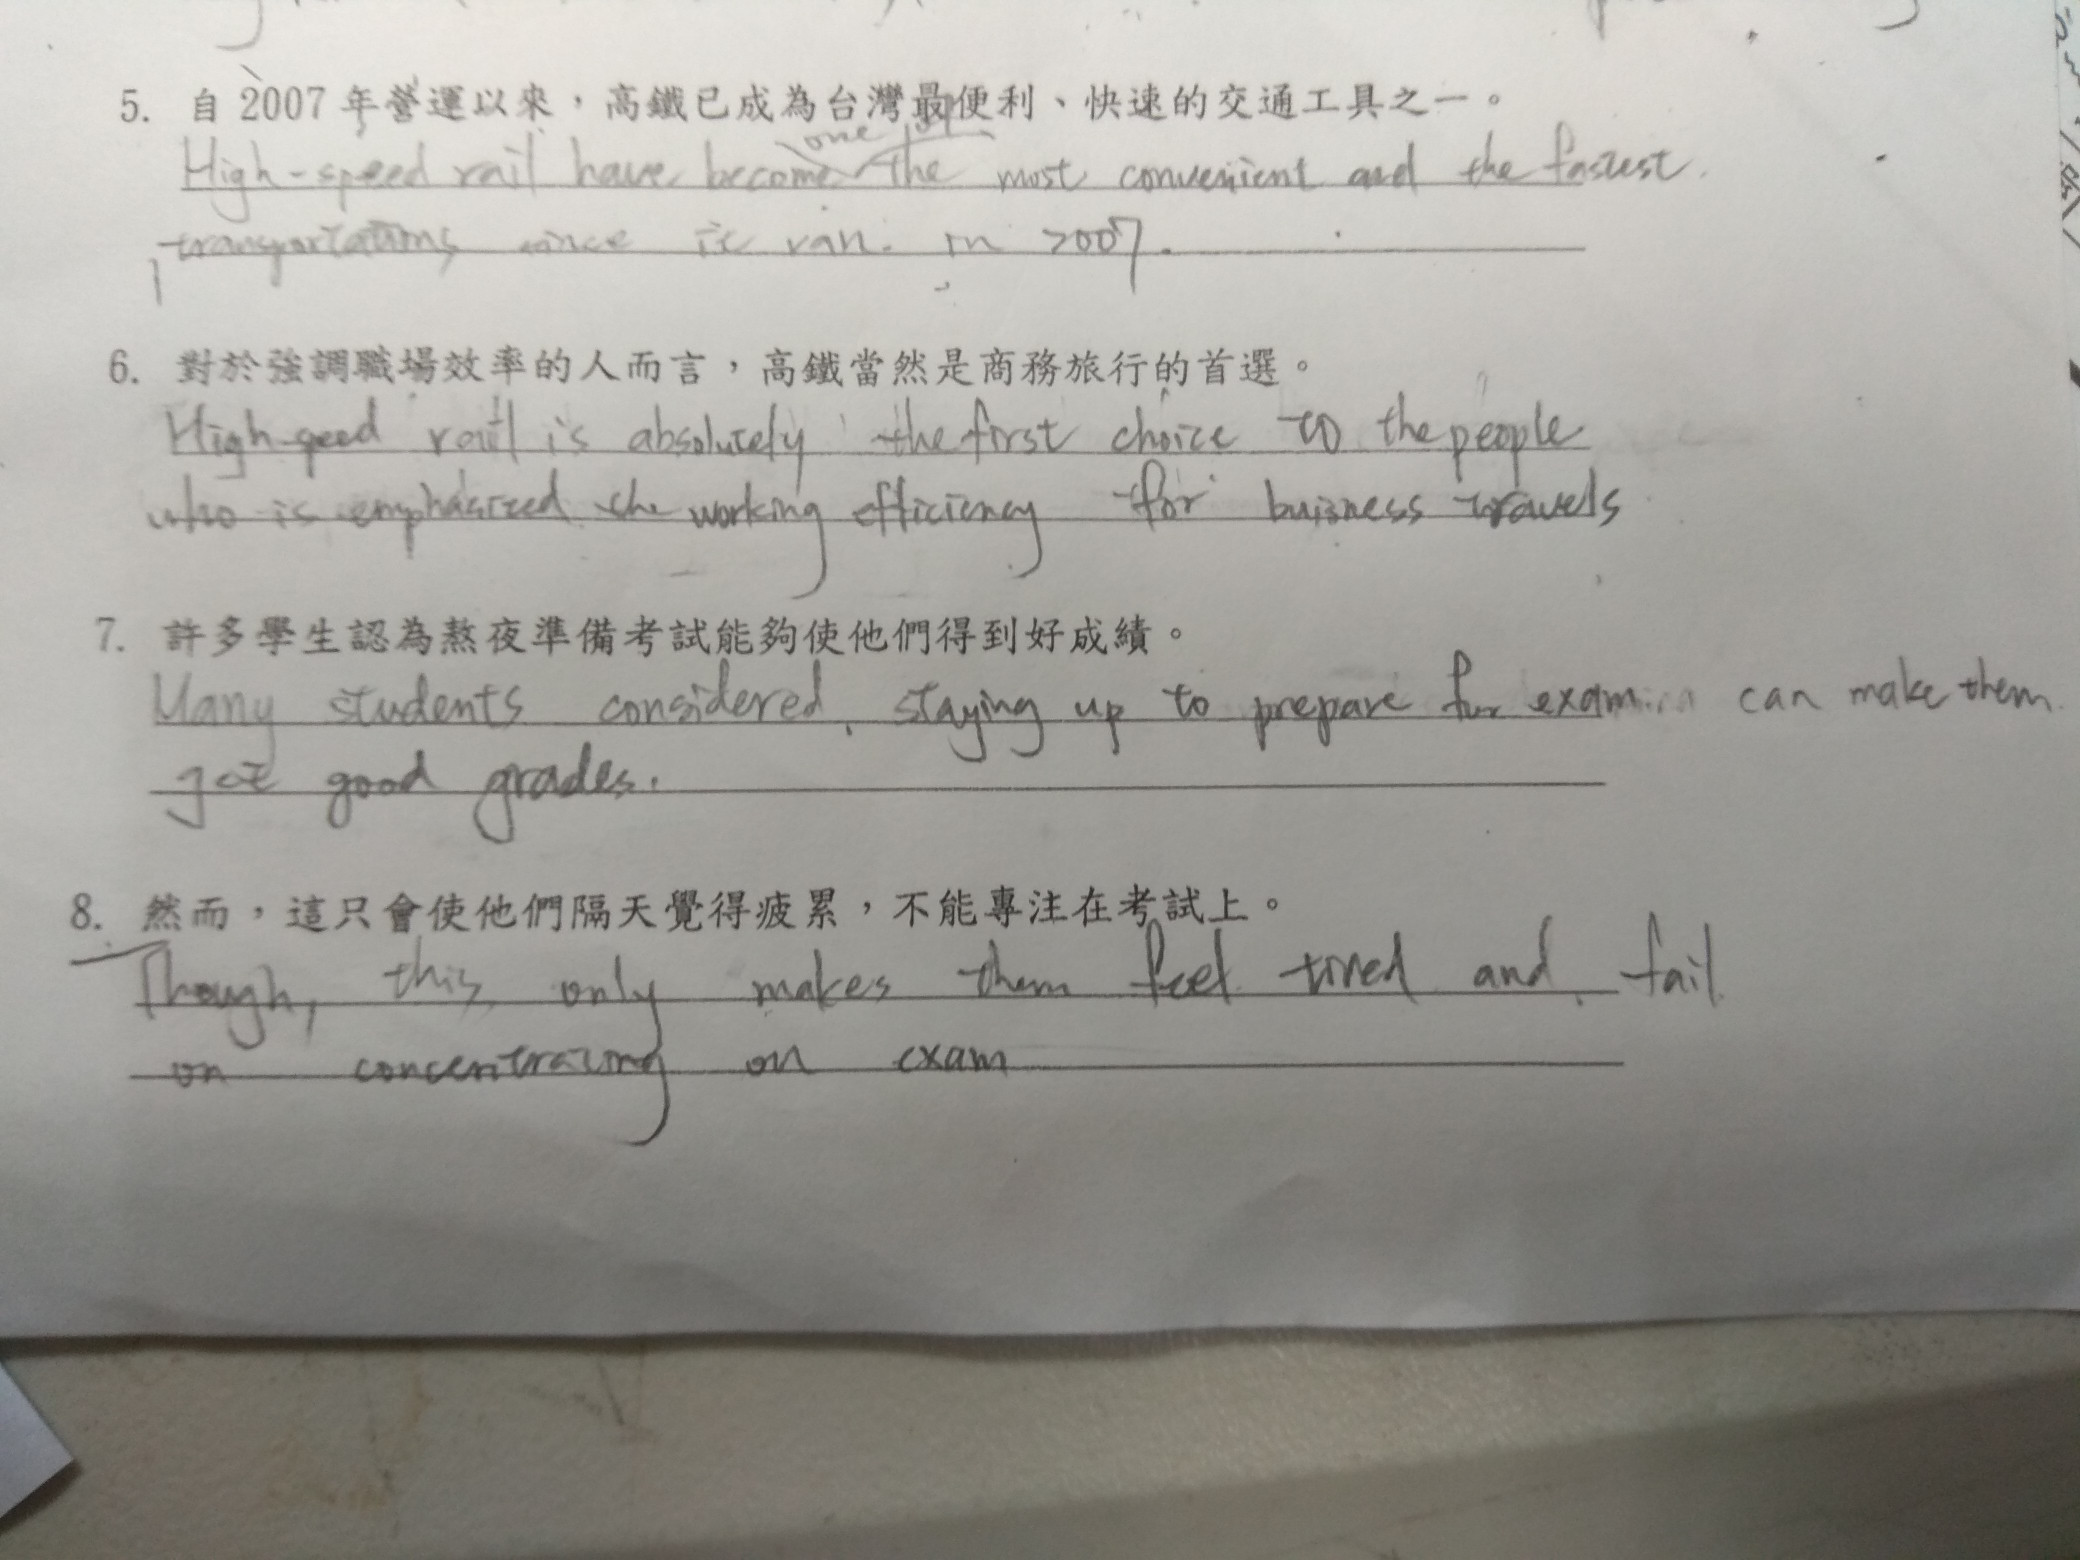 5. 自 2007 年營運以來，高鐵已成為台灣最便利、快速的交通工具之一。
one of
High-speed rail have become the most convenient and the fastest
transportations since it ran in 2007.
6. 對於強調職場效率的人而言，高鐵當然是商務旅行的首選。
High-speed rail is absolutely the first choice to the people
who is emphasized the working efficiency for buisness travels
7. 許多學生認為熬夜準備考試能夠使他們得到好成績。
Many students considered staying up to prepare for exam can make them
get good grades.
8. 然而，這只會使他們隔天覺得疲累，不能專注在考試上。
Though, this only makes them feel tired and fail
on concentrating on exam